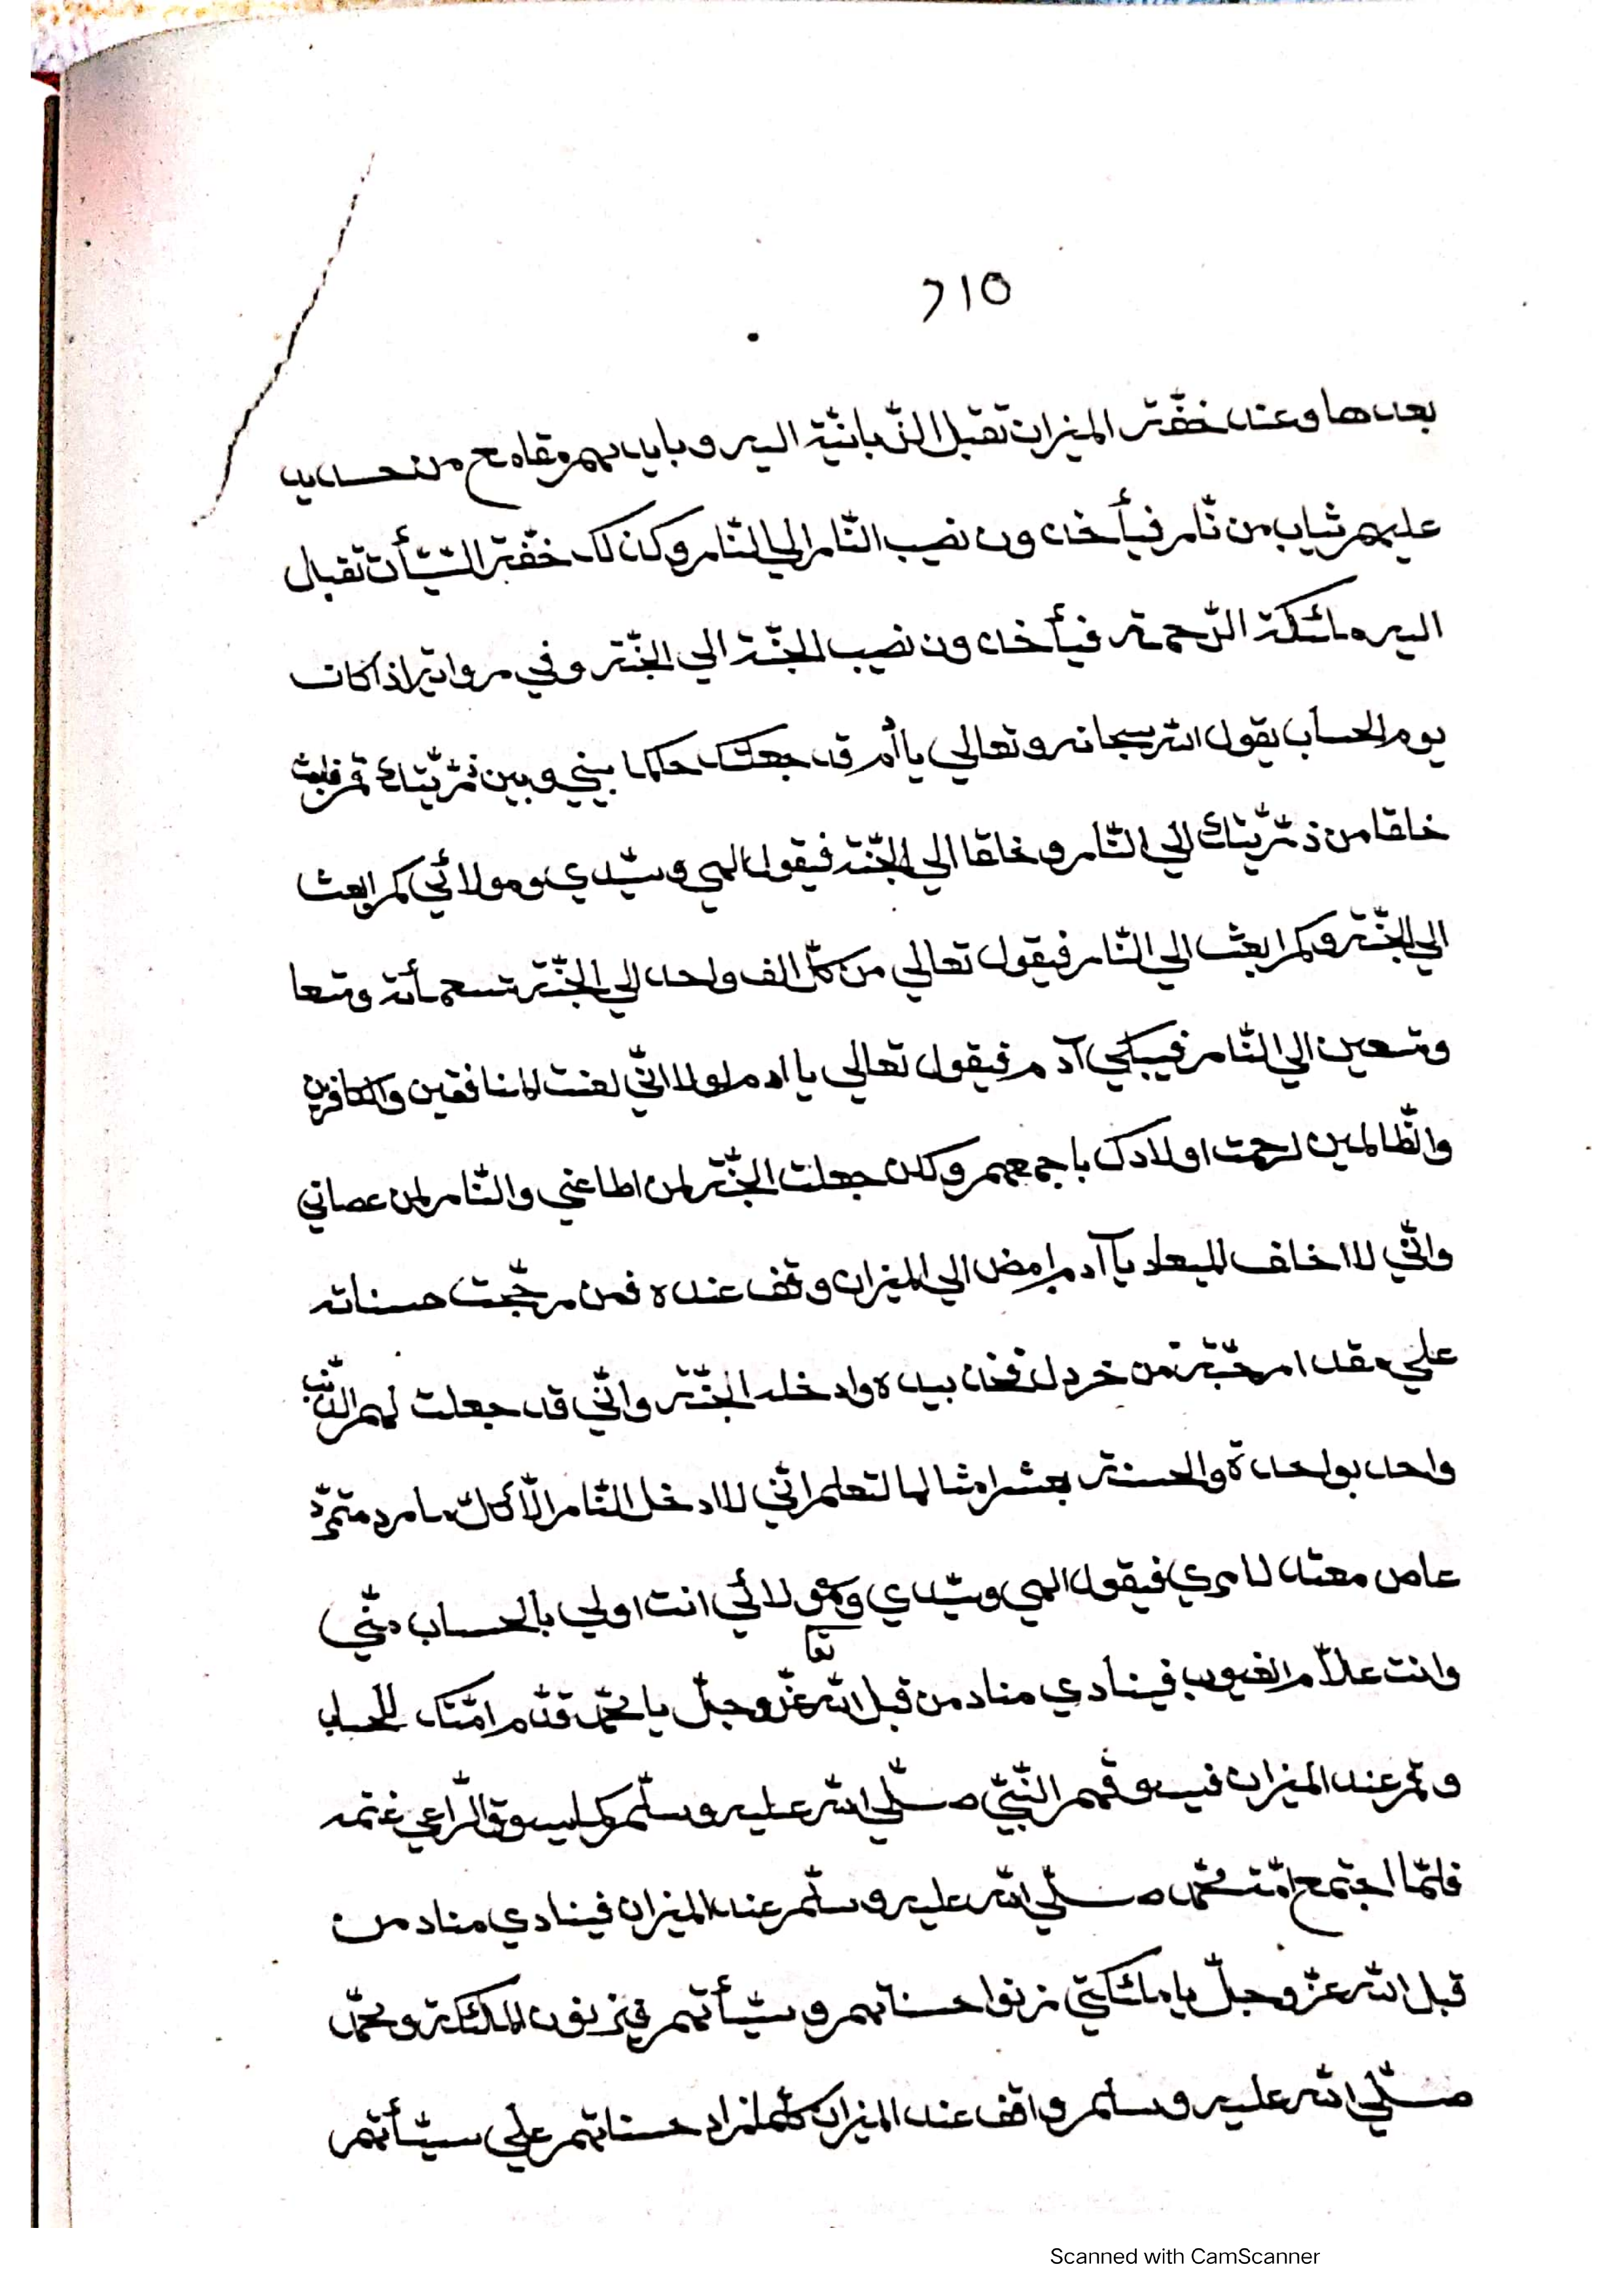 710
بعدها وعند خفّة الميزان تقبل الزّبانيّة اليه وبايديهم مقامع من حديد
عليهم ثياب من نّار فيأخذون نصيب النّار الي النّار وكذلك خفّة السّيّأت تقبال
اليه مائكة الرّحمة فيأخذون نصيب الجنّة الي الجنّة وفي رواية اذا كانت
يوم الحساب يقول الله سبحانه وتعالي يا أدم قد جعلتك حكما بيني وبين ذرّيّتك قم فابعث
خلقا من ذرّيّتك الي النّار وخلقا الي الجنّة فيقول الهي وسيّدي ومولائي كم ابعث
الي الجنّة وكم ابعث الي النّار فيقول تعالي من كلّ الف واحد الي الجنّة تسعمأئة وتسعا
وتسعين الي النّار فيبكي آدم فيقول تعالي يا ادم لولا انّي لعنت المنافقين والكافرين
والظّالمين لرحمت اولادك باجمعهم ولكن جعلت الجنّة لمن اطاعني والنّار لمن عصاني
وانّي لا اخلف الميعاد يا آدم امض الي الميزان وقف عنده فمن رجّحت حسناته
علي مقدار حبّة من خردل فخذ بيده وادخله الجنّة وانّي قد جعلت لهم الذّنب
واحد بواحدة والحسنة بعشر امثالها لتعلم انّي لا ادخل النّار الاّ كلّ مارد متمرّد
عاص معتد لامري فيقول الهي وسيّدي ومولائي انت اولي بالحساب منّي
وانت علاّم الغيوب فينادي مناد من قبل الله تعا عزّ وجلّ يا محمّد قدّم امّتك للحساب
وثم عند الميزان فيسوقهم النّبيّ صلّي الله عليه وسلّم كما يسوق الرّاعي غنمه
فلمّا اجتمع امّة محمّد صلّي الله عليه وسلّم عند الميزان فينادي مناد من
قبل الله عزّ وجلّ يا مائكتي زنوا حسناتهم وسيّأتهم فيزنون الملائكة ومحمّد
صلّي الله عليه وسلم واقف عند الميزان كلّما زاد حسناتهم علي سيّأتهم
Scanned with CamScanner